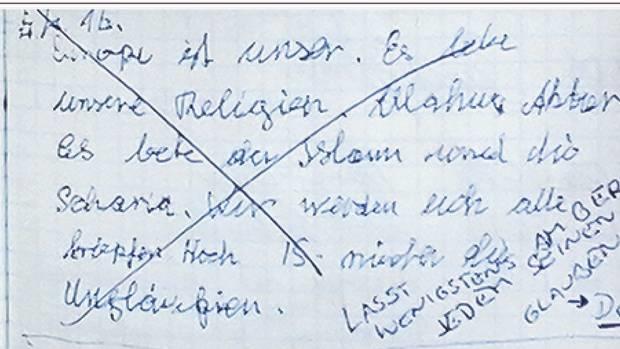 16.
Europa ist unser. Es lebe
unsere Religion. Allahu Akbar
Es lebe der Islam und die
Scharia. Wir werden euch alle
köpfen Hoch IS - nieder die
Ungläubigen.
LASST
WENIGSTENS
JEDEM
SEINEN
GLAUBEN